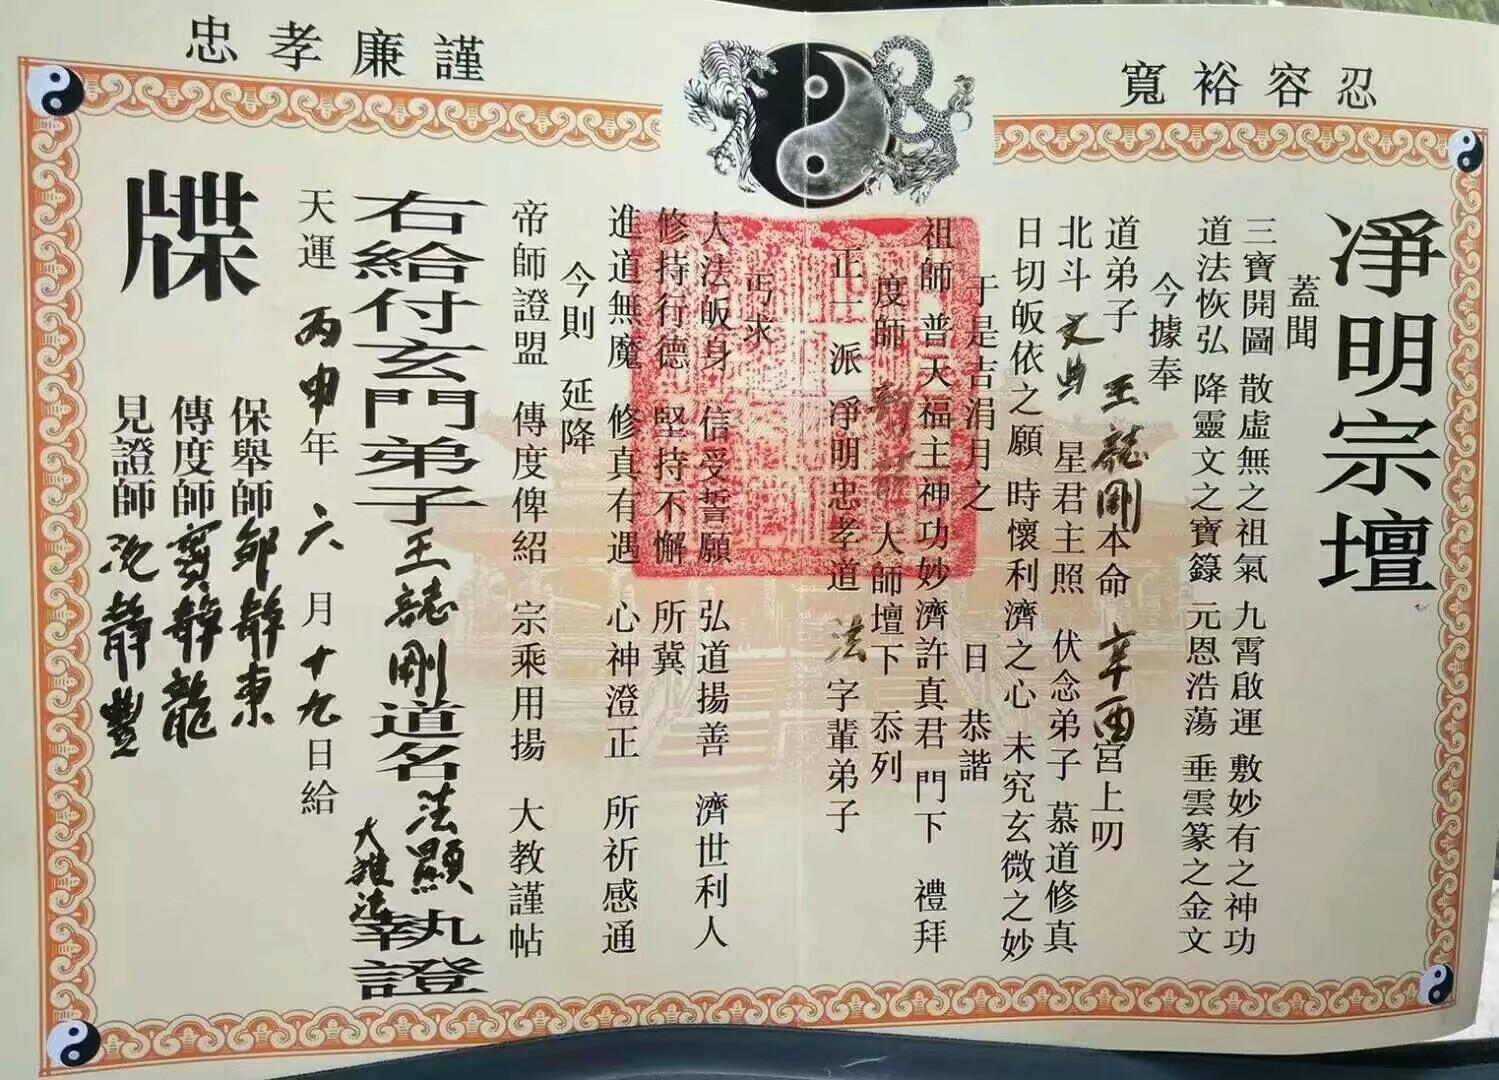 忠孝廉謹
寬裕容忍
凈明宗壇
蓋聞
三寶開圖 散虛無之祖氣 九霄啟運 敷妙有之神功
道法恢弘 降靈文之寶籙 元恩浩蕩 垂雲篆之金文
今據奉
道弟子 王誌剛本命 辛酉宮上叨
北斗 文曲 星君主照 伏念弟子 慕道修真
日切皈依之願 時懷利濟之心 未究玄微之妙
于是吉涓月之 日 恭諧
祖師 普天福主神功妙濟許真君 門下 禮拜
度師 大師壇下 忝列
正一派 凈明忠孝道 法 字輩弟子
丐求
大法皈身 信受誓願 弘道揚善 濟世利人
修持行德 堅持不懈 所冀
進道無魔 修真有遇 心神澄正 所祈感通
今則 延降
帝師證盟 傳度俾紹 宗乘用揚 大教謹帖
右給付玄門弟子王誌剛道名法顯 執證
天運 丙申年 六 月 十九日給
保舉師 鄒靜東
傳度師 靜龍
見證師 靜豐
牒